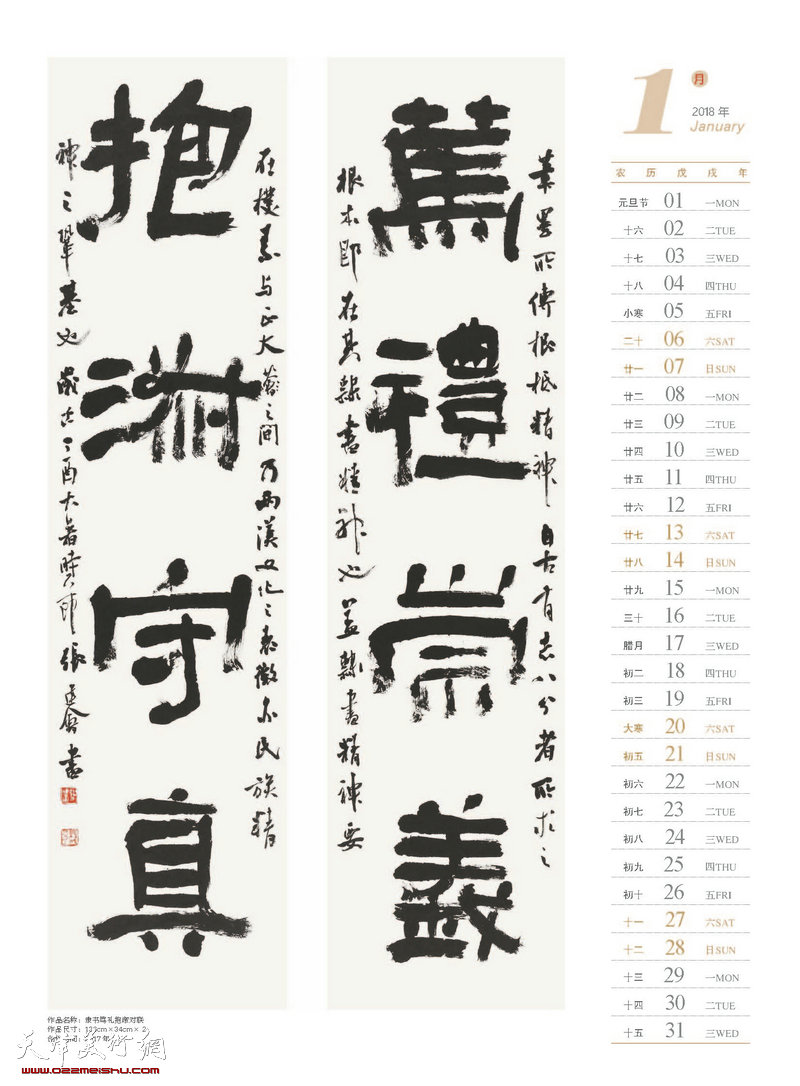 篤禮崇義
秉異所傳根柢精神自古有志八分者所求之
根本即在其隸書精神也蓋隸書精神要
抱淵守真
在樸素與正大
之間乃兩漢文化之表徵亦民族精
神之鞏基也歲在丁酉大暑時節張書
1月
2018 年
January
农历戊戌年
元旦节 01 一MON
十六 02 二TUE
十七 03 三WED
十八 04 四THU
小寒 05 五FRI
二十 06 六SAT
廿一 07 日SUN
廿二 08 一MON
廿三 09 二TUE
廿四 10 三WED
廿五 11 四THU
廿六 12 五FRI
廿七 13 六SAT
廿八 14 日SUN
廿九 15 一MON
三十 16 二TUE
腊月 17 三WED
初二 18 四THU
初三 19 五FRI
大寒 20 六SAT
初五 21 日SUN
初六 22 一MON
初七 23 二TUE
初八 24 三WED
初九 25 四THU
初十 26 五FRI
十一 27 六SAT
十二 28 日SUN
十三 29 一MON
十四 30 二TUE
十五 31 三WED
作品名称：隶书笃礼抱渊对联
作品尺寸：137cm×34cm×2
天津美術網
www.022meishu.com